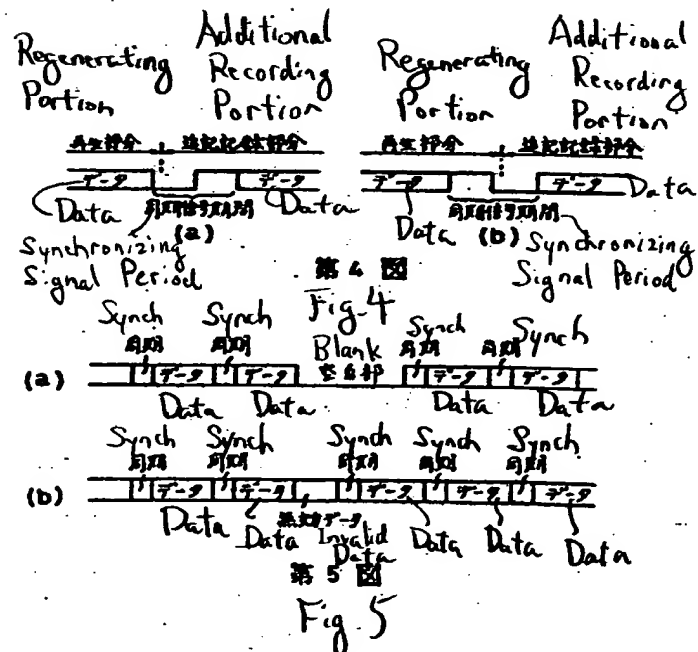 Regenerating Portion
Additional Recording Portion
Regenerating Portion
Additional Recording Portion
再生部分 追記記録部分 再生部分 追記記録部分
データ データ データ データ Data
Data 同期信号期間 Data Data 同期信号期間
(a) (b)
Synchronizing Signal Period
Synchronizing Signal Period
第4図
Fig. 4
Synch Synch Blank Synch Synch
同期 同期 空白部 同期 同期
(a) データ データ データ データ
Data Data Data Data
Synch Synch Synch Synch Synch
同期 同期 同期 同期 同期
(b) データ データ データ データ データ
無効データ
Data Data Invalid Data Data Data Data
第5図
Fig. 5